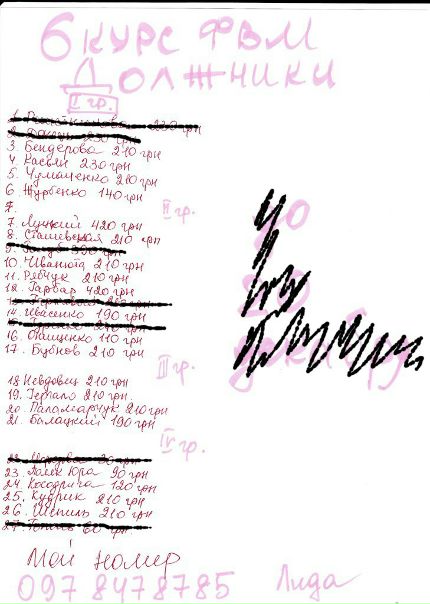 6 КУРС ФВМ
ДОЛЖНИКИ
I гр.
230 грн
2. 230 грн
3. Бендерова 210 грн
4. Касьян 230 грн
5. Чумаченко 210 грн
6 Журбенко 140 грн
7.
II гр.
7. Луцкий 420 грн
8. Сташевская 210 грн
9. Голуб 390 грн
10. Иванюта 210 грн
11. Ревчук 210 грн
12. Гарбар 420 грн
13.
14. Ивасенко 190 грн
15.
16. Онищенко 110 грн
17. Бубнов 210 грн
III гр.
18 Невдовец 210 грн
19. Гергало 210 грн.
20. Паламарчук 210 грн
21. Балацкий 190 грн
IV гр.
22. грн
23. Заяек Юра 90 грн
24. Косодрига 120 грн
25. Кудрик 210 грн
26. Шепиль 210 грн
27. 60 грн
Мой номер
097 8478785 Лида